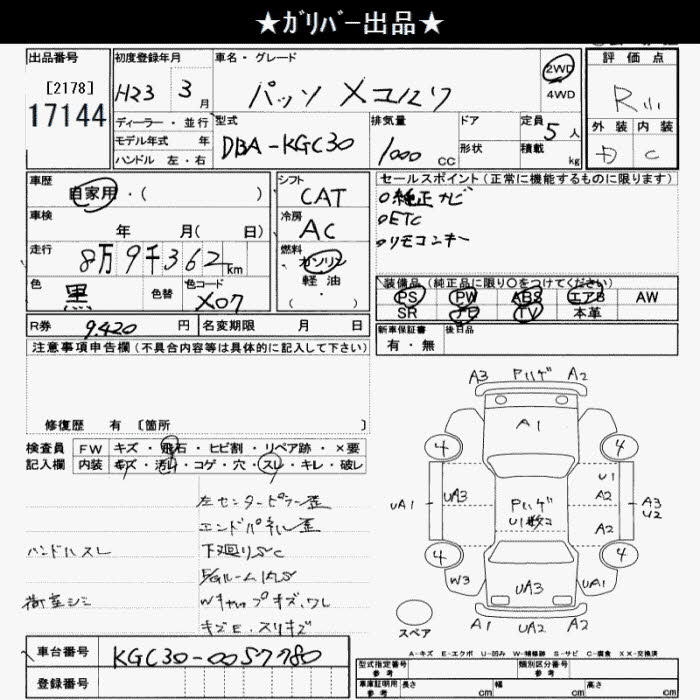 ★ｶﾞﾘﾊﾞｰ出品★
出品番号
[2178]
17144
初度登録年月
H23 3 月
車名・グレード
パッソ
2WD
4WD
評価点
R
外装 内装
C
ディーラー・並行
モデル年式 年
ハンドル 左・右
型式
DBA-KGC30
排気量
1000 CC
ドア
形状
定員 5 人
積載 kg
車歴
自家用・( )
車検
年 月( 日)
走行
8万9千362 km
色
黒
色替
色コード
X07
シフト
CAT
冷房
AC
燃料
ガソリン
軽油
・( )
セールスポイント(正常に機能するものに限ります)
○純正ナビ
○ETC
○リモコンキー
装備品(純正品に限り○をつけてください)
PS PW ABS エアB AW
SR ナビ TV 本革
新車保証書
有・無
後日品
R券 9420 円 名変期限 月 日
注意事項申告欄(不具合内容等は具体的に記入して下さい)
修復歴 有 [箇所 ]
検査員
記入欄
FW キズ・飛石・ヒビ割・リペア跡・×要
内装 キズ・汚れ・コゲ・穴・スレ・キレ・破レ
左センターピラー歪
エンドパネル歪
ハンドルスレ
下廻りS・C
E/Gルーム内S
荷室シミ
Wキャップキズ、ワレ
キズE・スリキズ
車台番号 KGC30-0057780
登録番号
A3 Pハゲ A2
A1
4 4
UA1 UA3
Pハゲ
U1数コ
U1
A2
A2
A3
U2
4 4
W3 UA3 UA1
A1 UA2 A2
スペア
A-キズ E-エクボ U-凹み W-補修跡 S-サビ C-腐食 XX-交換済
型式指定番号
参考
類別区分番号
参考
車庫証明用
参考
長さ cm 幅 cm 高さ cm